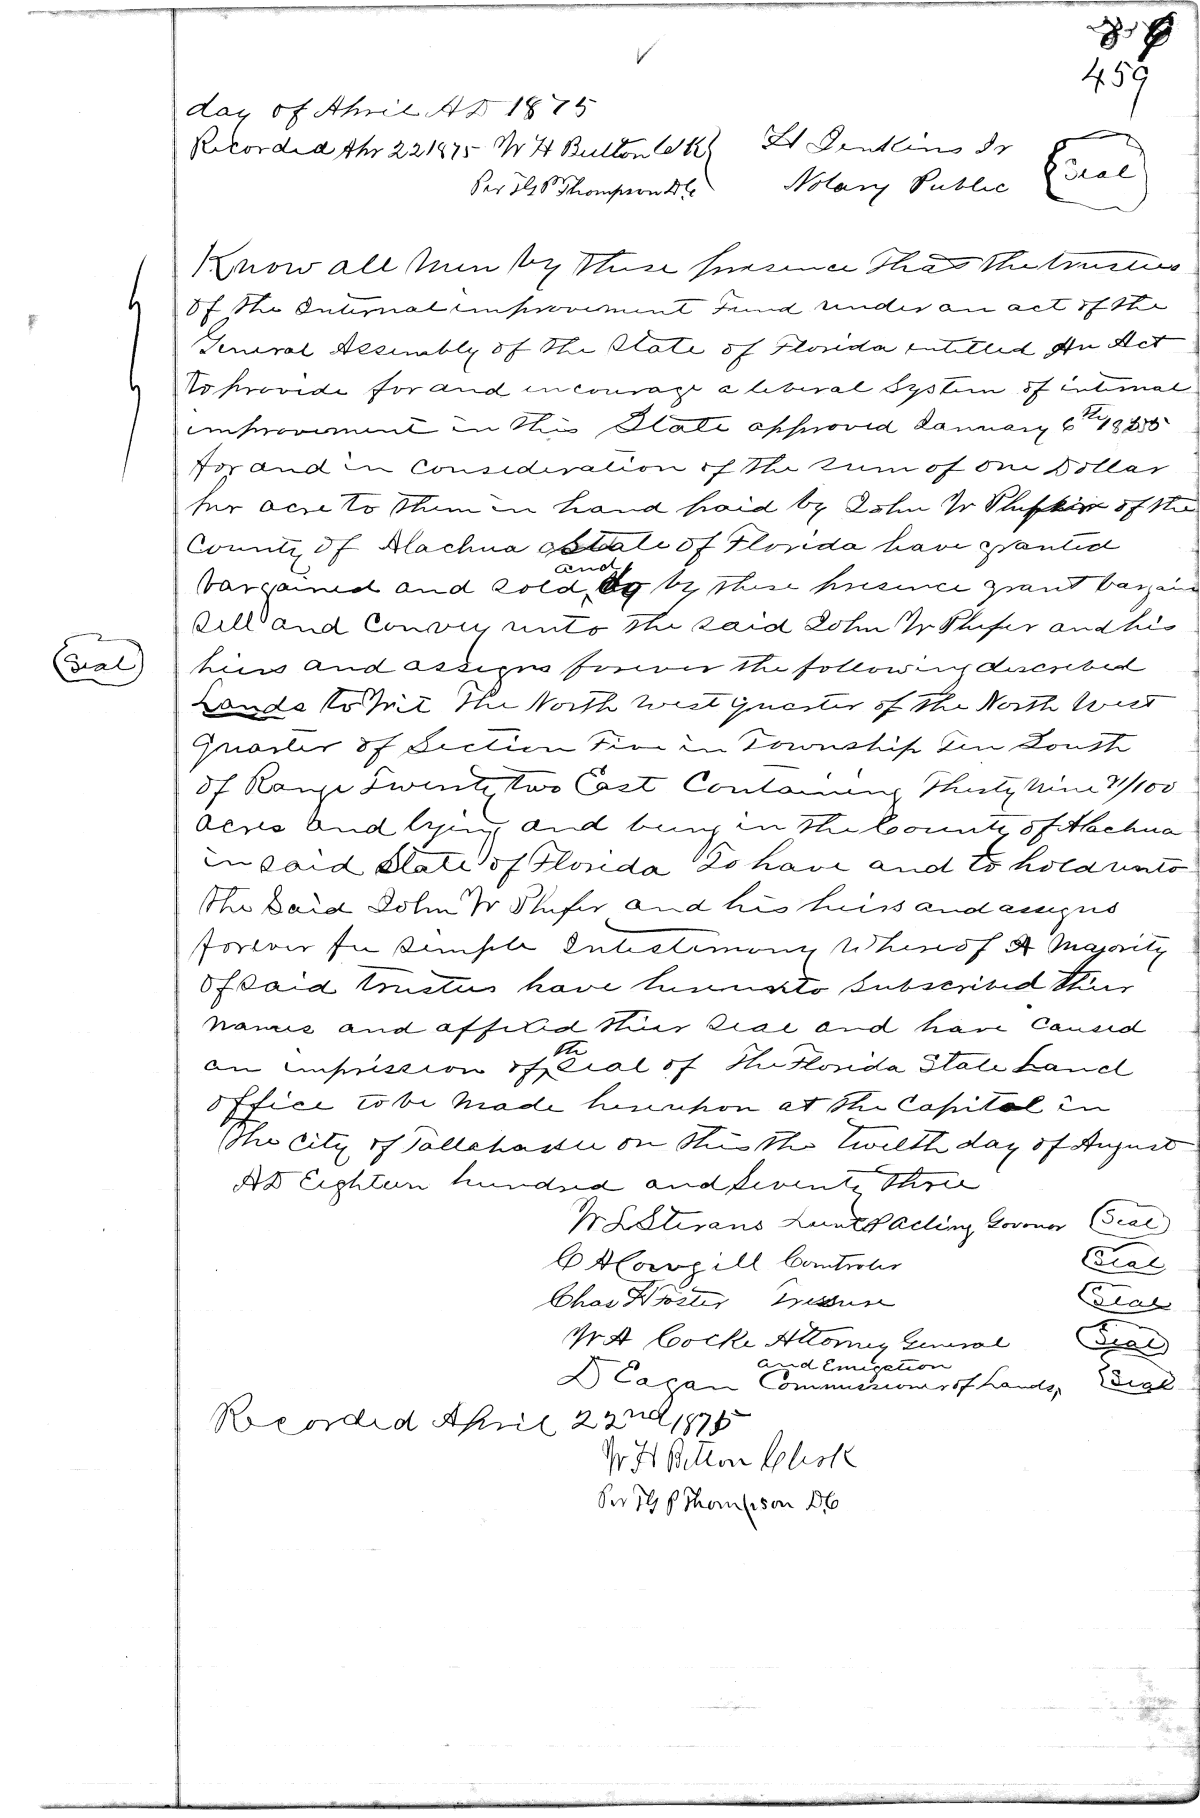 459
day of April AD 1875
Recorded Apr 22 1875 W H Belton Clk
Per TG P Thompson D.C
H Jenkins Jr
Notary Public
Seal
Know all Men by these presence That the trustees
of the Internal improvement Fund under an act of the
General Assembly of the State of Florida entitled An Act
to provide for and encourage a liberal System of internal
improvement in this State approved January 6th 1855
for and in consideration of the sum of one Dollar
per acre to them in hand paid by John W of the
County of Alachua State of Florida have granted
bargained and sold and do by these presence grant bargain
Sell and Convey unto the said John W Phifer and his
Seal
heirs and assigns forever the following described
Lands to Wit The North west quarter of the North West
quarter of Section Five in Township Ten South
of Range Twenty two East Containing Thirty Nine 71/100
acres and lying and being in the County of Alachua
in said State of Florida To have and to hold unto
the Said John W Phifer and his heirs and assigns
forever fee simple Intestimony Whereof A Majority
of said trustees have hereunto subscribed thier
names and affixed thier seal and have caused
an impression of the seal of The Florida State Land
office to be Made hereupon at the Capitol in
the City of Tallahassee on this the twelth day of August
AD Eighteen hundred and Seventy Three
W L Sterans Acting Govonor Seal
C A Cowgill Comtroler Seal
Chas H Foster Seal
W A Cocke Attorney General Seal
D Eagan Commissioner of Lands and Emigation Seal
Recorded April 22nd 1875
W H Belton Clerk
Per TG P Thompson D.C